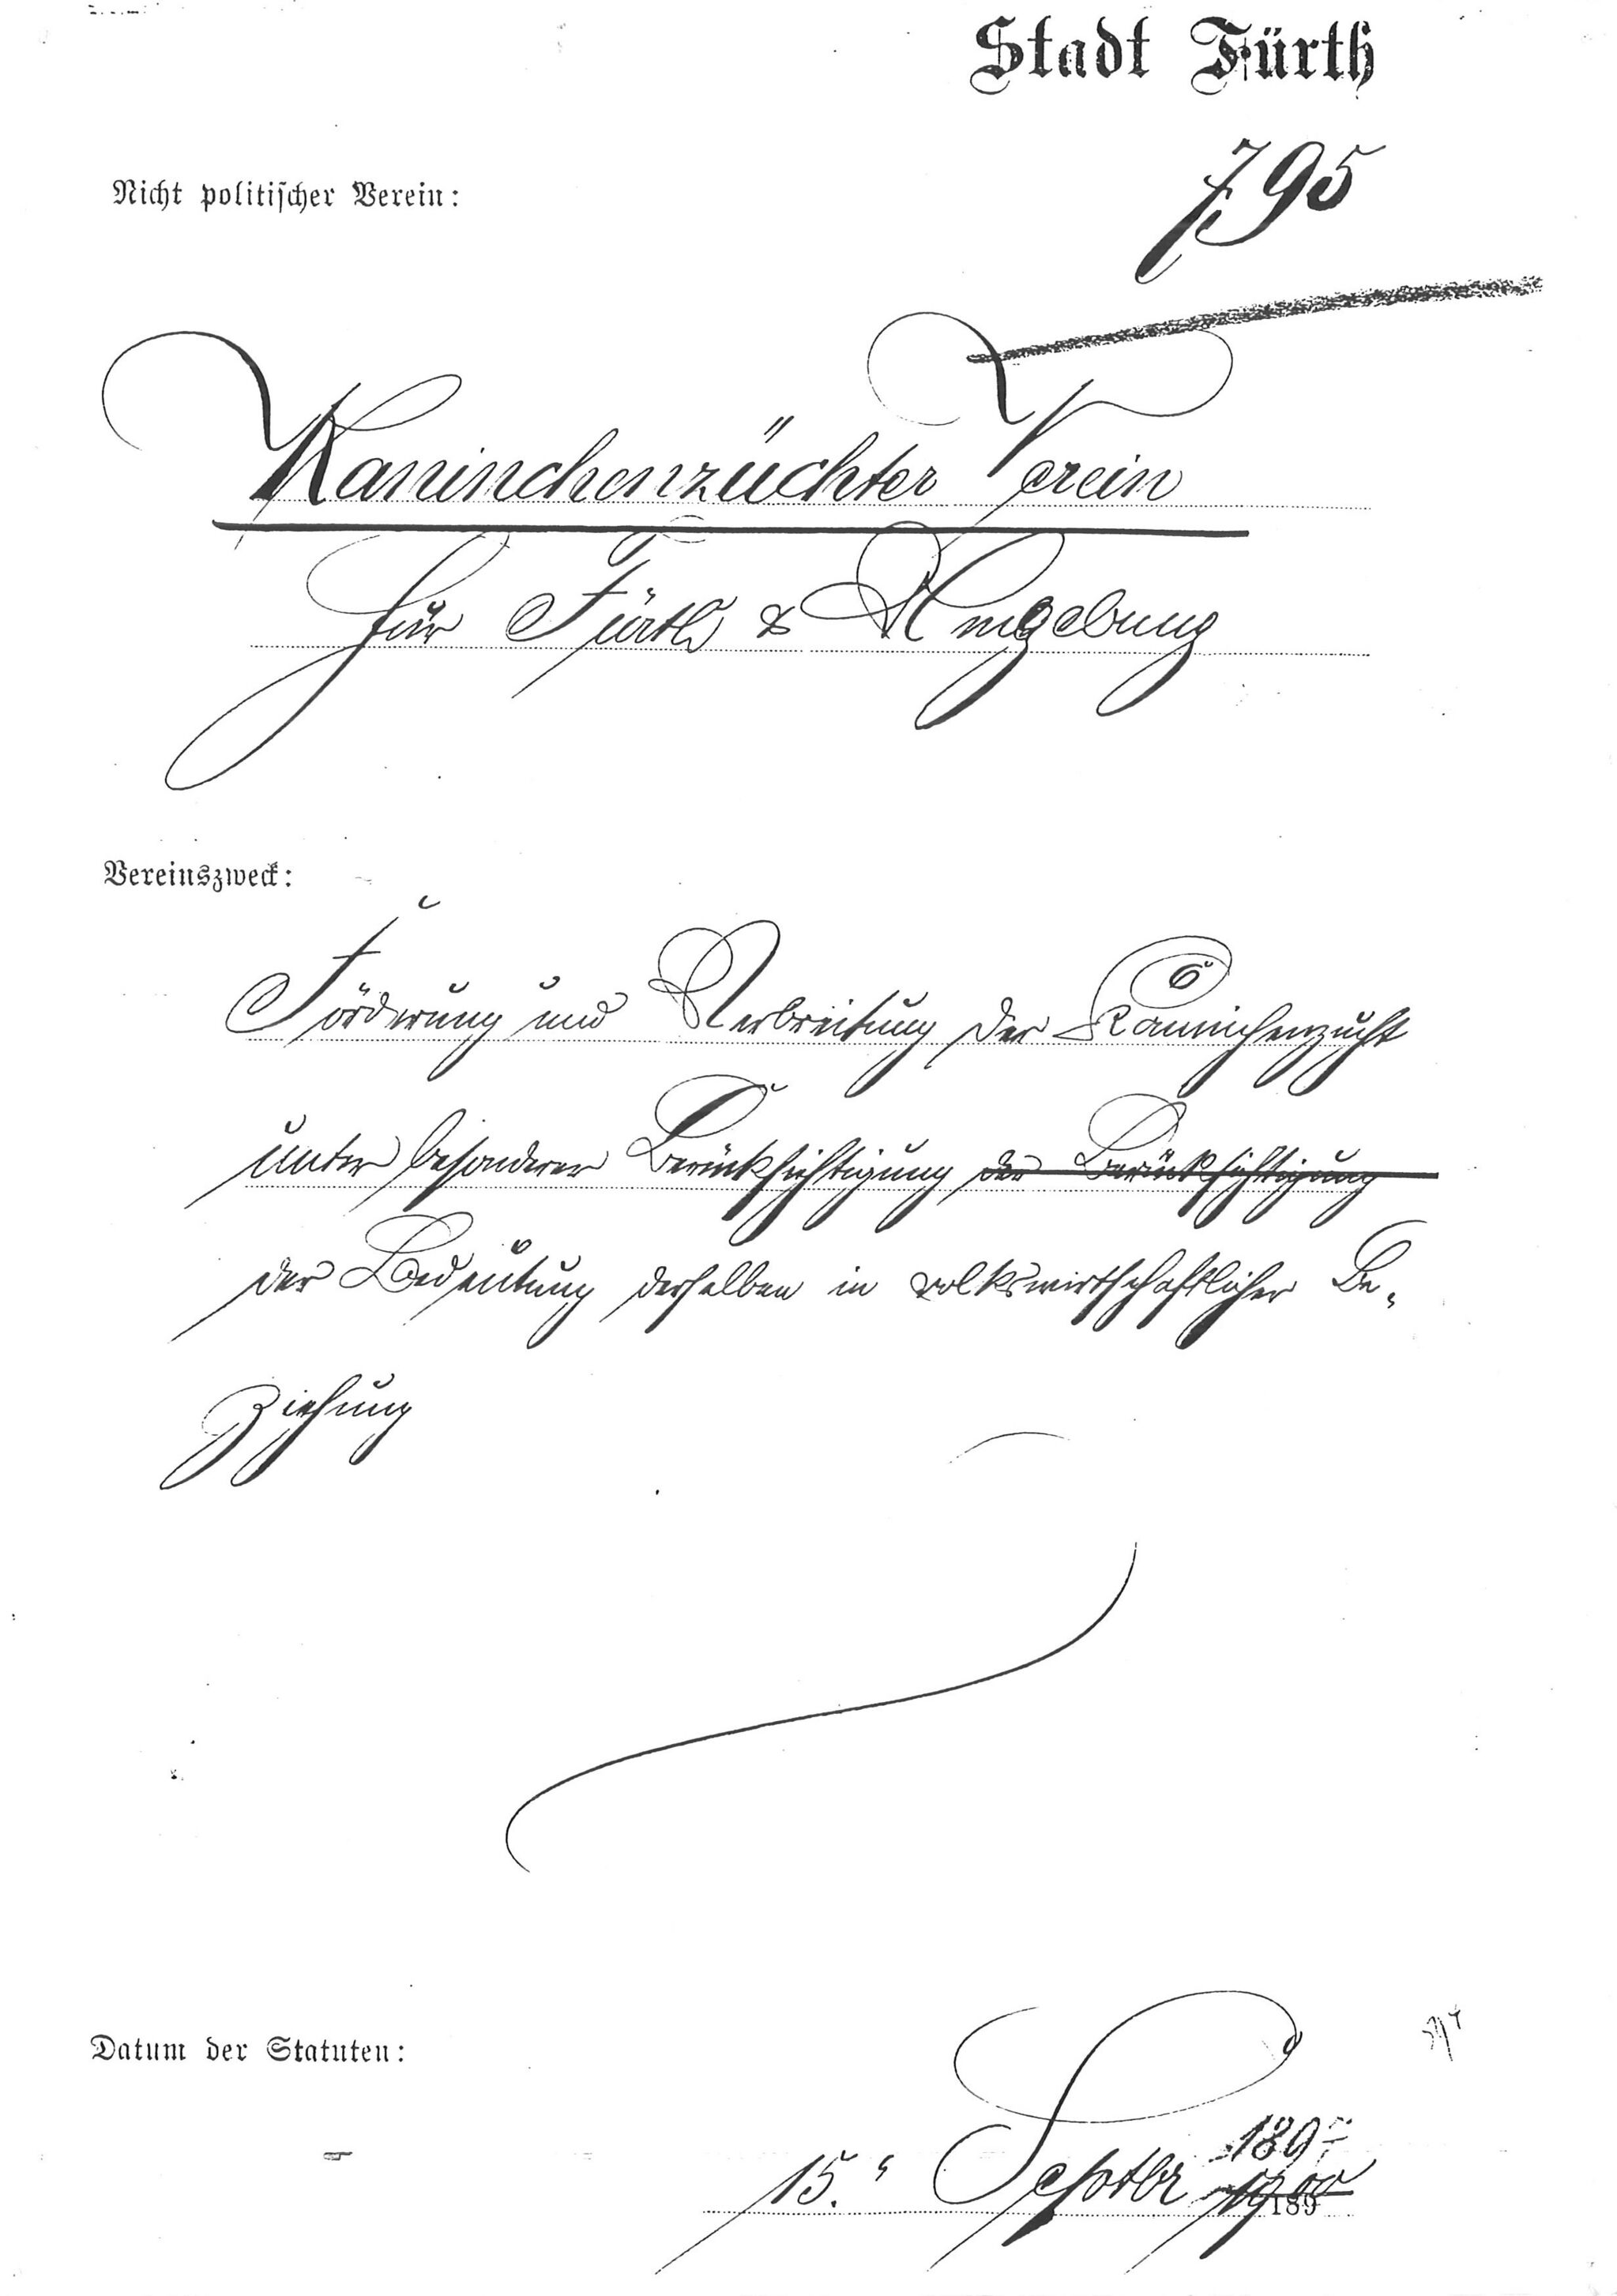 Stadt Fürth
795
Nicht politischer Verein:
Kaninchenzüchter Verein
für Fürth & Umgebung
Vereinszweck:
Förderung und Verbreitung der Kaninchenzucht
unter besonderer Berücksichtigung der Berücksichtigung
der Bedeutung derselben in volkswirtschaftlicher Be„
ziehung
Datum der Statuten:
15. Septbr 1900
189